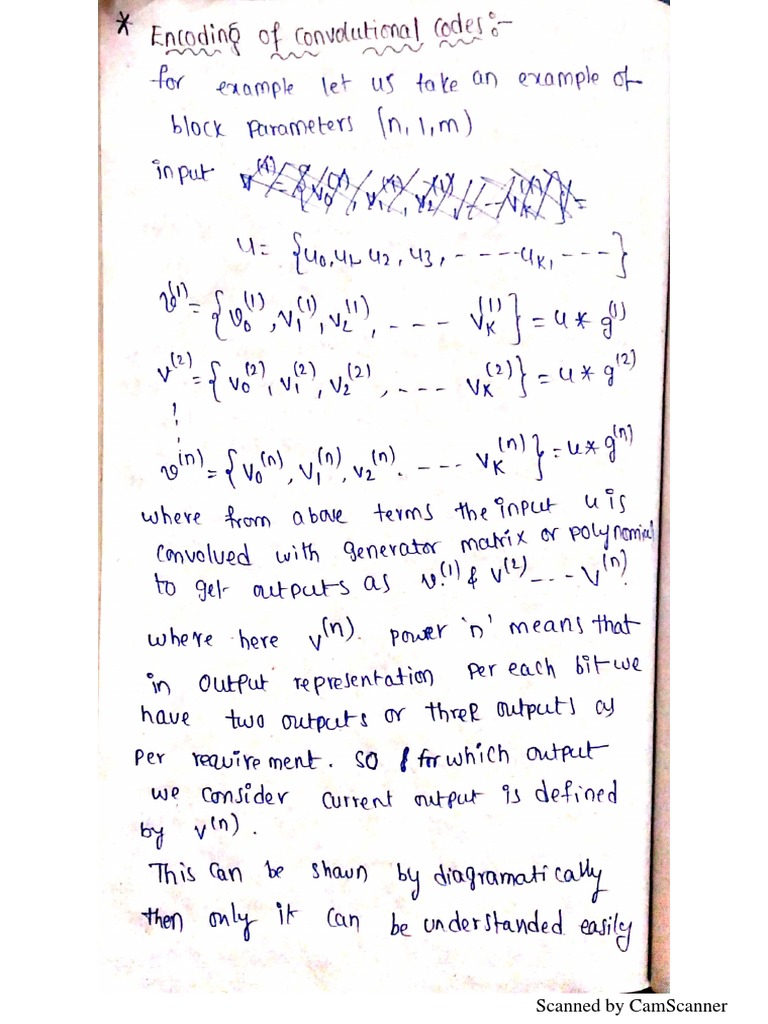 * Encoding of Convolutional Codes:-
for example let us take an example of
block parameters (n, 1, m)
input
u = {u0, u1, u2, u3, - - - - - uK, - - - -}
v(1) = {v0(1), v1(1), v2(1), - - - - - - vK(1)} = u * g(1)
v(2) = {v0(2), v1(2), v2(2), - - - - - - vK(2)} = u * g(2)
v(n) = {v0(n), v1(n), v2(n). - - - - - - vK(n)} = u * g(n)
where from above terms the input u is
convolued with generator matrix or polynomial
to get outputs as v(1) & v(2) - - - - v(n).
where here v(n). power 'n' means that
in output representation per each bit we
have two outputs or three outputs as
per requirement. so for which output
we consider current output is defined
by v(n).
This can be shawn by diagramatically
then only it can be understanded easily
Scanned by CamScanner